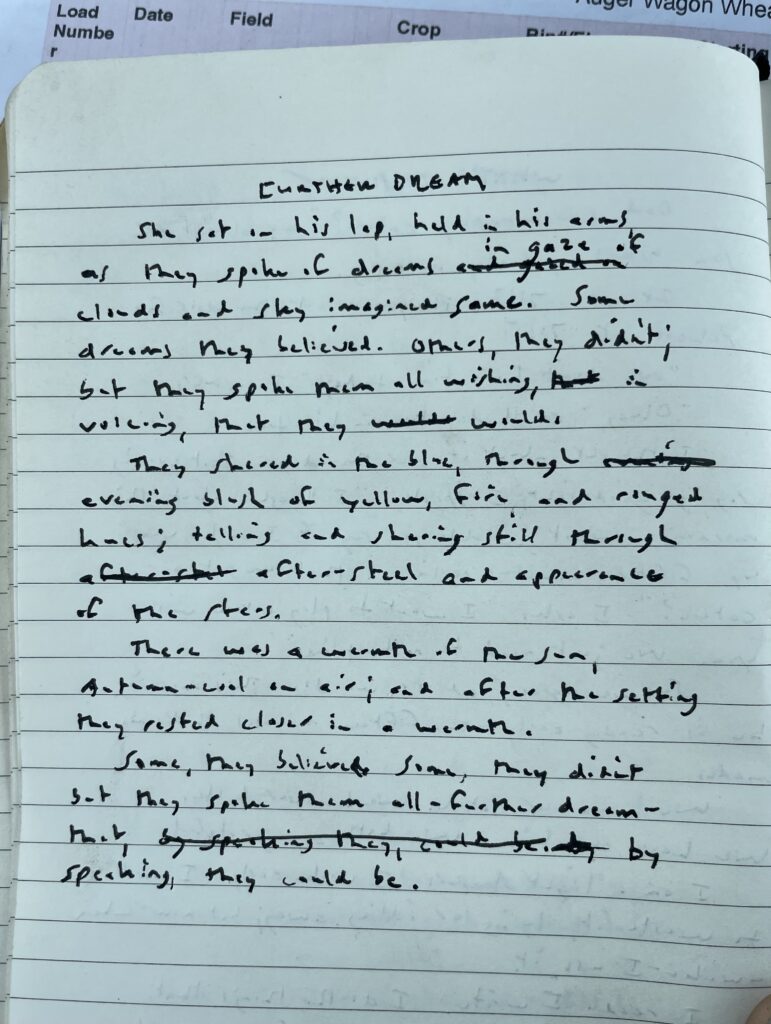 Auger Wagon Whea
Load Date Field Crop
Numbe
r
FURTHER DREAM
She sat in his lap, held in his arms
in gaze of
as they spoke of dreams and gazed on
clouds and sky imagined same. Some
dreams they believed. Others, they didn't;
but they spoke them all wishing, that in
voicing, that they would would.
They shared in the blue, through
evening blush of yellow, fire, and ranged
hues; telling and sharing still through
after-steel and appearance
of the stars.
There was a warmth of the sun,
Autumn-cool on air; and after the setting
they rested closer in a warmth.
Some, they believed. Some, they didn't
but they spoke them all-further dream-
that, by speaking they, could be. by by
speaking, they could be.